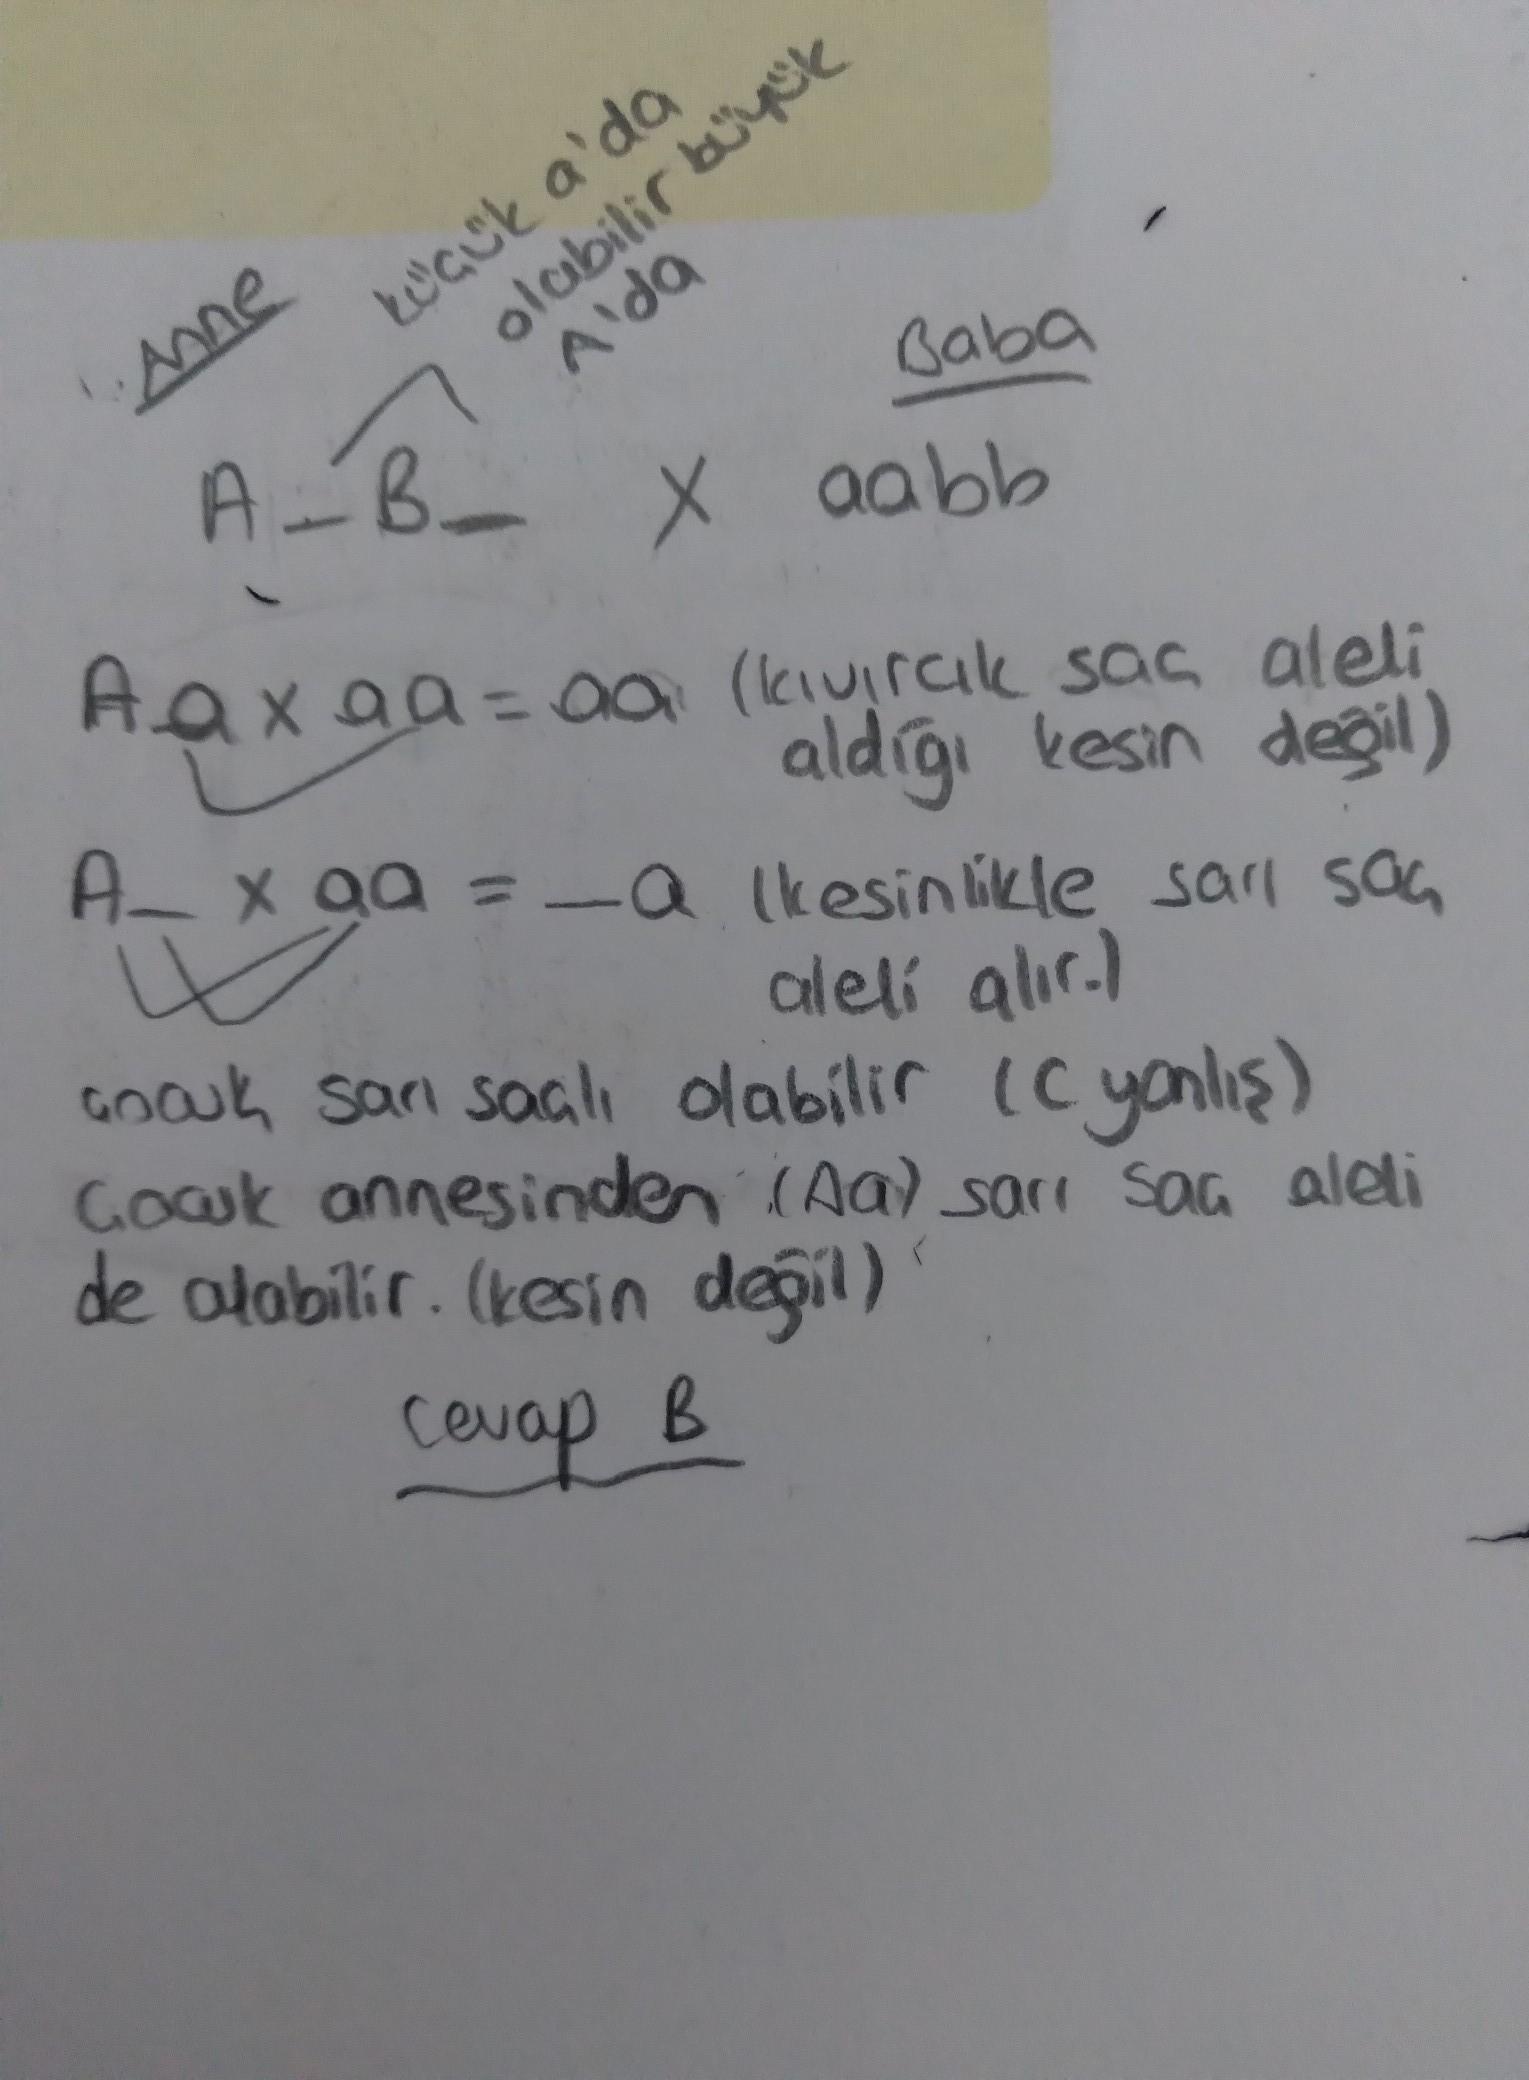 Anne
küçük a'da
olabilir büyük
A'da
Baba
A_B_ X aabb
Aa x aa = aa (kıvırcık saç aleli
aldığı kesin değil)
A_ x aa = _a (kesinlikle sarı saç
aleli alır.)
çocuk sarı saçlı olabilir (C yanlış)
Çocuk annesinden (Aa) sarı saç aleli
de alabilir. (kesin değil)
Cevap B